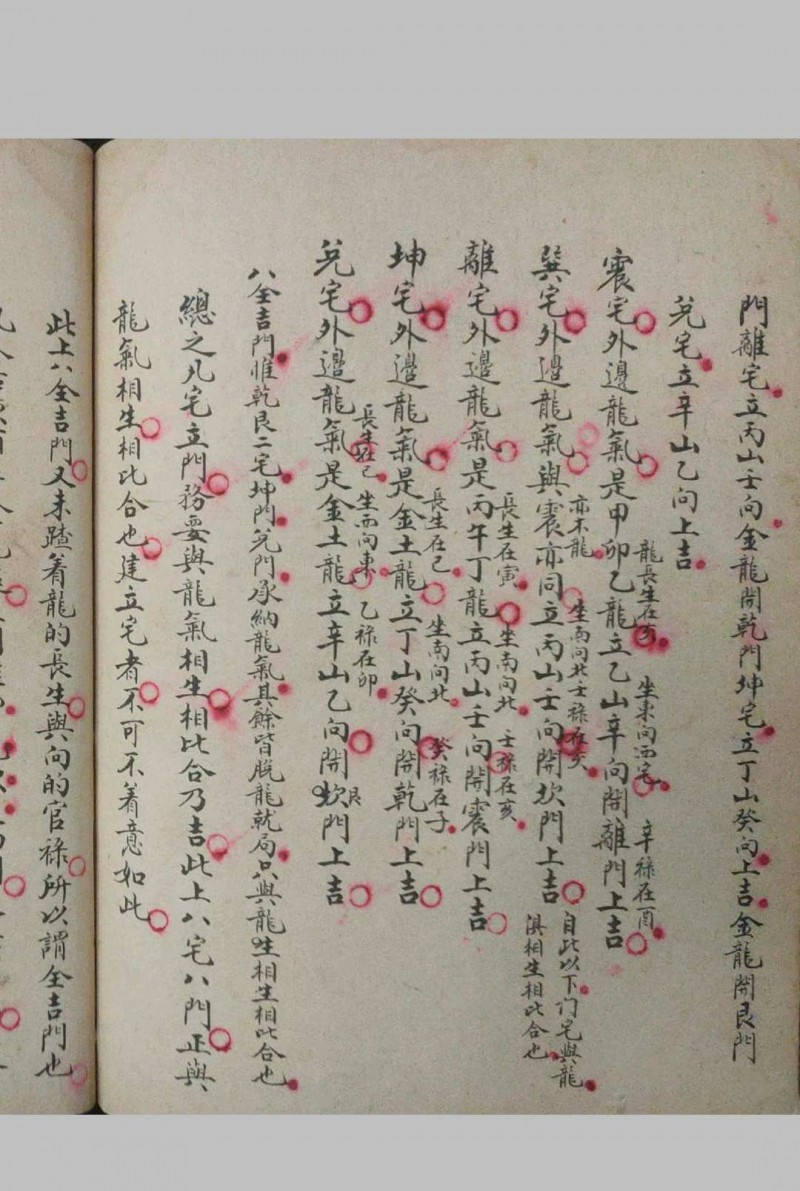 門離宅立丙山壬向金龍開乾門坤宅立丁山癸向上吉金龍開艮門
兌宅立辛山乙向上吉
龍長生在亥 坐東向西宅 辛祿在酉
震宅外邊龍氣是甲卯乙龍立乙山辛向開離門上吉
亦木龍 坐南向北壬祿在亥 自此以下门宅與龍
巽宅外邊龍氣與震亦同立丙山壬向開坎門上吉
滇相生相比合也
長生在寅 坐南向北 壬祿在亥
離宅外邊龍氣是丙午丁龍立丙山壬向開震門上吉
長生在巳 坐南向北 癸祿在子
坤宅外邊龍氣是金土龍立丁山癸向開乾門上吉
長生在巳 坐西向東 乙祿在卯
兌宅外邊龍氣是金土龍立辛山乙向開坎艮門上吉
八全吉門惟乾艮二宅坤門兌門承納龍氣其餘皆脫龍就局只與龍生相生相比合也
總之凡宅立門務要與龍氣相生相比合乃吉此上八宅八門正與
龍氣相生相比合也建立宅者不可不着意如此
此上八全吉門又未踏着龍的長生與向的官祿所以謂全吉門也